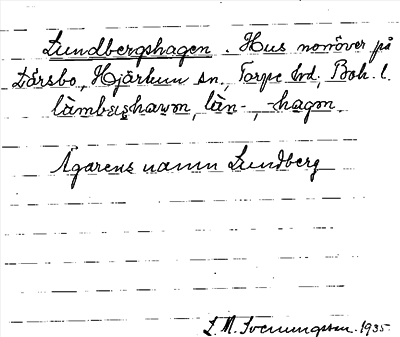 Lundbergshagen. Hus norröver på
Därsbo, Hjärtum sn, Torpe hd, Boh. l.
län-, hagen
Ägarens namn Lundberg
L. M. Svenungsson. 1935